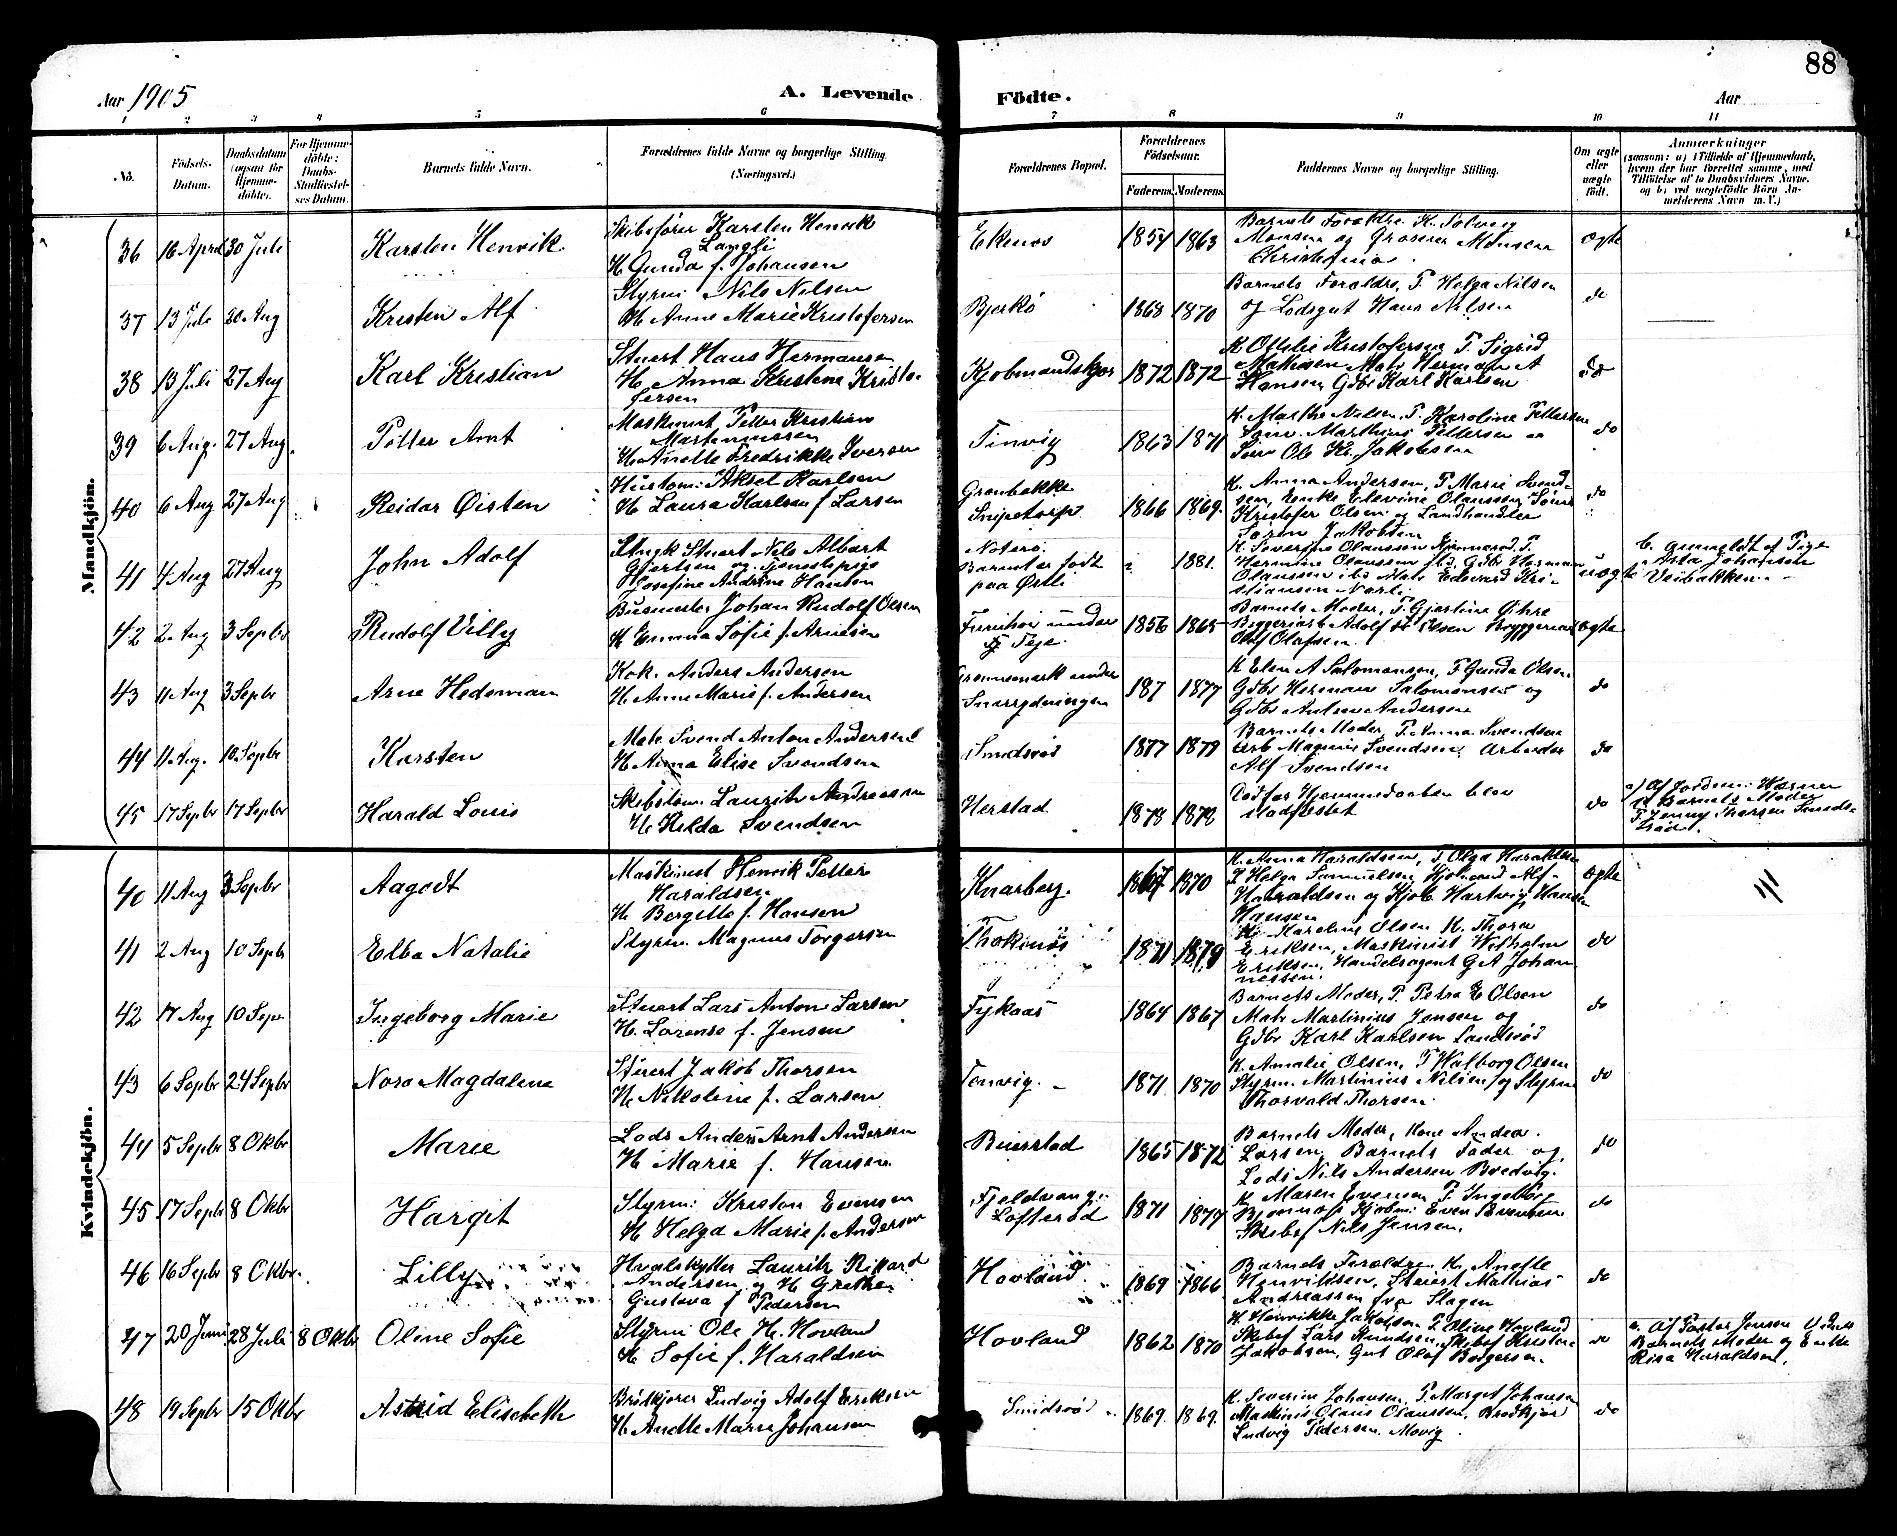 88
Aar 1905
A. Levende
Födte.
Aar
1 2 3 4 5 6 7 8 9 10 11
No.
Födsels-
Datum.
Daabsdatum
(ogsaa for
Hjemme-
döbte).
For Hjemme-
döbte:
Daabs-
Stadfæstel-
ses Datum.
Barnets fulde Navn.
Forældrenes fulde Navne og borgerlige Stilling.
(Næringsvei.)
Forældrenes Bopæl.
Forældrenes
Födselsaar.
Faderens. Moderens.
Faddernes Navne og borgerlige Stilling.
Om ægte
eller
uægte
født.
Anmærkninger
(saasom: a) i Tilfælde af Hjemmedaab,
hvem der har forrettet samme, med
Tilföielse af to Daabsvidners Navne.
og b) ved uægtefödte Börn An-
melderens Navn m. V.)
Mandkjön.
36 16 April 30 Juli Karsten Henvik
Skibsfører Karsten Henvik
Langli
H. Gunda f. Johansen
Ekenes 1854 1863
Barnets Forældre. K. Solveig
Monsen og Grosserer Monsen
Christiania
ægte
37 13 Juli 20 Aug Kristen Alf
Styrm Nils Nilsen
H. Anne Marie Kristofersen
Bjerkö 1868 1870
Barnets Forældre, P. Helga Nilsen
og Lodsgut Hans Nilsen
do
38 13 Juli 27 Aug Karl Kristian
Stuert Hans Hermansen
H. Anna Kristene Kristo-
fersen
Kjobmandskjær 1872 1872
K Otthlie Kristofersen P. Sigrid
Mathisen Matr Herman A
Hansen Gdbr Karl Karlsen
do
39 6 Aug. 27 Aug. Petter Arnt
Maskinist Petter Kristian
Martinussen
H. Anette Fredrikke Iversen
Tinvig 1863 1871
K. Marthe Nilsen, P. Karoline Pettersen
Tøm. Marthius Pettersen og
Tøm Ole Kr. Jakobsen
do
40 6 Aug 27 Aug Reidar Øisten
Hustøm: Aksel Karlsen
H. Laura Karlsen f Larsen
Grønbakke
Snipetorp 1866 1869.
K. Anna Andersen, P Marie Svend-
sen, Enke Elevine Olaussen, Tøm
Kristofer Olsen og Landhandler
Søren Jakobsen
do
41 4 Aug 27 Aug John Adolf
Ungk Stuert Nils Albert
Gjertsen og Tjenestepige
Josefine Andrine Hansen
Noterø.
Barnet er født
paa Østli 1881.
K. Severine Olaussen Hjemmerød. P.
Hermine Olaussen ibd Gdbr Herman
Olaussen ibd Matr Edvard Kri-
stiansen Narli
uægte
b. anmeldt af Pige
Asta Johansen
Veibakken
42 2. Aug 3 Sepbr Rudolf Villy
Busmester Johan Rudolf Olsen
H Emma Sofie f. Arnesen
Fureihøi under
Teje. 1856 1865
Barnets Moder, P. Gjertine Øihre
Byggeriarb Adolf Olsen Bryggeriarb
Olaf Olafsen
ægte
43 11 Aug 3 Sepbr Arne Hedeman
Kok. Anders Andersen
H. Anne Marie f. Andersen
Grønnemark under
Snarrydningen 187 1877
K Elen A Salomonsen, P Gunda Olsen
Gdbr Herman Salomonsen og
Gdbr Anton Andersen
do
44 11. Aug. 10 Sepbr Karsten
Matr Svend Anton Andersen
H. Anna Elise Svendsen
Smidsrød 1877 1879
Barnets Moder, P. Anna Svendsen
Arb Magnus Svendsen, Arbeider
Alf Svendsen
do
45 17 Sepbr 17 Sepbr Harald Louis
Skibstøm: Lauritz Andreassen
H. Hilda Svendsen
Herstad 1878 1872
Død før Hjemmedaaben blev
stadfæstet
do
a) Af Jordem: Warner
Barnets Moder
P. Jenny Thorsen Smids-
rød.
Kvindekjön.
40 11 Aug 3 Sepbr Aagodt
Maskinist Henrik Petter
Haraldsen
H. Bergitte f. Hansen
Knarberg. 1867 1870
K. Anna Haraldsen, P. Olga Haraldsen
P Helga Samuelsen Kjøbmand Alf
Haraldsen og Kjøb Hartvig Hansen
Hansen
ægte
41 2 Aug 10 Sepbr Elba Natalie
Styrm. Magnus Torgersen
Thokenæs 1871 1879
K. Karoline Olsen K. Thora
Eriksen, Maskinist Wilhelm
Eriksen, Handelsagent G A Johan
nessen.
do
42 17 Aug 10 Sepr Ingeborg Marie
Stuert Lars Anton Larsen
H. Lorense f. Jensen
Tykaas 1864 1867
Barnets Moder, P. Petra E Olsen
Matr Martinius Jensen og
Gdbr Karl Karlsen Sandsrød
do
43 6 Sepbr 24 Sepbr Nora Magdalene
Stuert Jakob Thorsen
H. Nikoline f. Larsen
Tenvig. 1871 1870
K. Amalie Olsen, P Walborg Olsen
Styrm. Martinius Nilsen og Styrm
Thorvald Thorsen.
do
44 5 Sepbr 8 Oktbr Marie
Lods Anders Arnt Andersen
H Marie f. Hansen
Beierstad 1865 1872
Barnets Moder, Kone Andrea
Larsen, Barnets Fader og
Lods Nils Andersen Bredvig.
do
45 17 Sepbr 8 Oktbr Hargit
Styrm: Kristen Evensen
H Helga Marie f. Andersen
Fjeldvang
Lofterød 1871 1877
K Maren Evensen P. Ingeborg
Bjønnes Kjøbm: Even Evensen
Skibsf Nils Jensen.
do
46 16 Sepbr 8 Oktbr. Lilly
Hvalskytter Lauritz Rikard
Andersen og H. Grethe
Gustava f Pedersen
Hovland 1869 1866
Barnets Forældre K. Anette
Henriksen, Stuert Mathias
Andreassen fra Slagen
do
47 20 Juni 28 Juli 8 Oktbr Oline Sofie
Styrm Ole H. Hovland
H. Sofie f. Haraldsen
Hovland 1862 1870
K Henrikke Jakobsen P Oline Hovland
Skibsf Lars Knudsen, Skibsf Kristen
Jakobsen, Gut Olaf Borgersen.
do
a. Af Pastor Jensen Vidnes
Barnets Moder og Enke
Risa Haraldsen.
48 19 Sepbr 15 Oktbr Astrid Elisebeth
Brødkjører Ludvig Adolf Eriksen
H. Anette Marie Johansen
Smidsrød 1869. 1869.
K. Severine Johansen P. Marget Johansen
Maskinist Olaus Olaussen, Brødkjør
Ludvig Pedersen. Movig
do